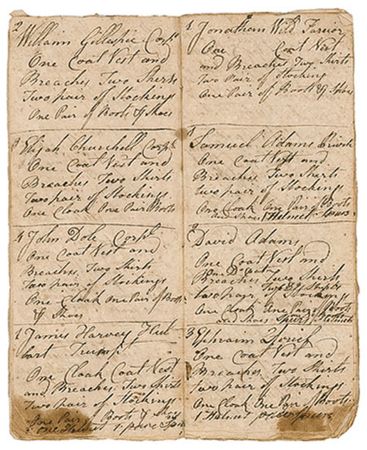 2
William Gillespie Corpl
One Coat Vest and
Breaches Two Shirts
Two pair of Stockings
One Pair of Boots & Shoes
3
Elijah Churchell Corpl
One Coat Vest and
Breaches Two Shirts
Two pair of Stockings
One Cloak One Pair Boots
4 John Dole Corpl
One Coat Vest and
Breaches, Two Shirts
Two pair of Stockings
One Cloak One Pair of Boots
& Shoes
1 James Harvey
Trump
One Cloak Coat Vest
and Breaches Two Shirts
Two pair of Stockings
One Pair of Boots & Shoes
1
Jonathan
One Coat Vest
and Breaches Two Shirts
Two Pair of Stocking
One Pair of Boots & Shoes
Samuel Adams Private
One Coat Vest and
Breaches Two Shirts
Two pair of Stockings
One Cloak One Pair Boots
and Shoes 1 Helmet
2
David Adams
One Coat Vest and
Breaches Two Shirts
Two pair Stockings
One Cloak One Pair Boots
and Shoes
3 Ephraim
One Coat Vest and
Breaches Two Shirts
Two pair of Stockings
One Cloak One Pair of Boots
1 Helmet